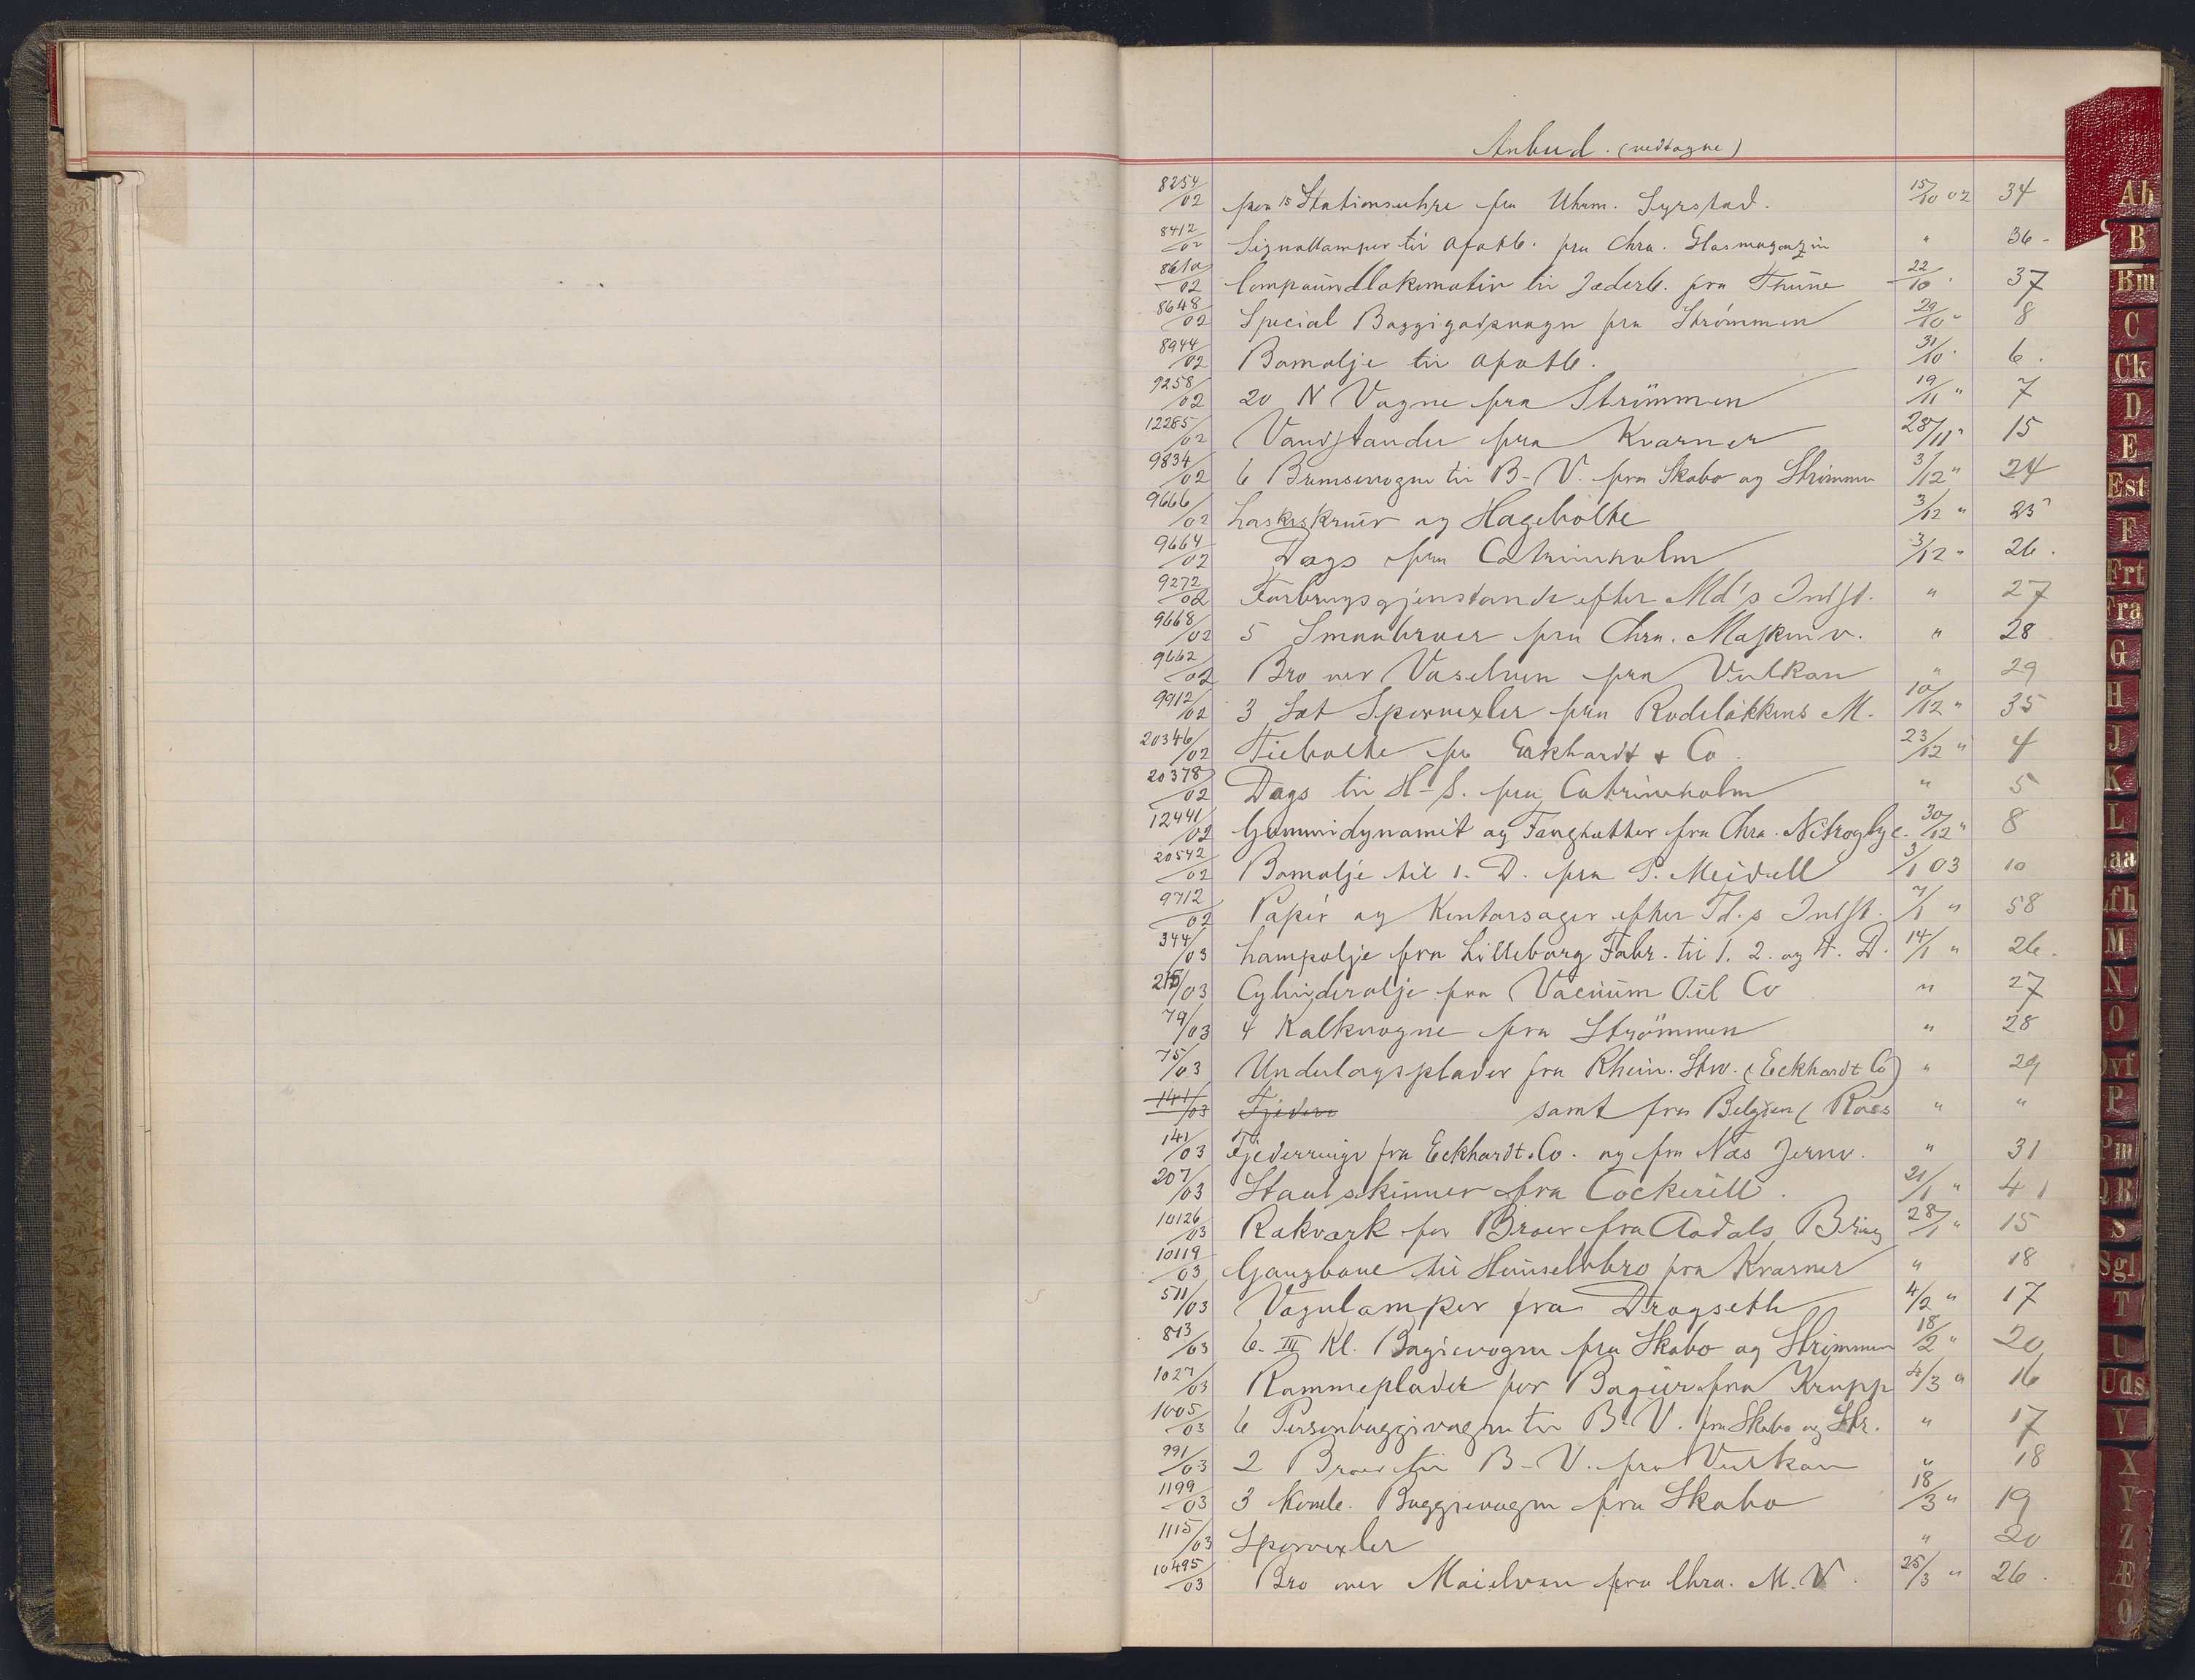 Anbud. (vedtagne)
8254/02 paa 15 Stationsuhre fra Uhrm. Syrstad. 15/10 02 34
8412/02 Signallamper til Ofotb. fra Chra. Glasmagazin " 36-
8610/02 Compoundlokomotiv til Jæderb. fra Thune 22/10 " 37
8648/02 Special Boggigodsvogn fra Strömmen 29/10 " 8
8944/02 Bomolje til Ofotb. 31/10 " 6.
9258/02 20 N Vogne fra Strömmen 19/11 " 7
12285/02 Vandstander fra Kværner 28/11 " 15
9834/02 6 Bremsevogne til B-V. fra Skabo og Strömmen 3/12 " 24
9666/02 Laskeskruer og Hagebolte 3/12 " 25
9664/02 Dogs fra Catrineholm 3/12 " 26.
9272/02 Farbrugsgjenstande efter Md's Indst. " 27
9668/02 5 Smaabroer fra Chra. Maskinv. " 28
9662/02 Bro over Vaselven fra Vulkan " 29
9912/02 3 Sæt Sporvexler fra Rodeløkkens M. 10/12 " 35
20346/02 Tiebolte fra Eckhardt & Co. 23/12 " 4
20378/02 Dogs til H-S. fra Catrineholm " 5
12441/02 Gummidynamit og Fænghætter fra Chra. Nitroglyc. 30/12 " 8
20542/02 Bomolje til 1. D. fra P. Meidell 3/1 03 10
9712/02 Papir og Kontorsager efter Td.s Indst. 7/1 " 58
344/03 Lampolje fra Lilleborg Fabr. til 1. 2. og 4. D. 14/1 " 26.
215/03 Cylinderolje fra Vacuum Oil Co " 27
79/03 4 Kalkvogne fra Strömmen " 28
75/03 Underlagsplader fra Rhein. Stw. (Eckhardt Co) " 29
141/03 Fjedere samt fra Belgien (Roes " "
141/03 Fjederringe fra Eckhardt & Co. og fra Næs Jernv. " 31
207/03 Staalskinner fra Cockerill. 21/1 " 41
10126/03 Rækværk for Broer fra Aadals Brug 28/1 " 15
10119/03 Gangbane til Hunselvbro fra Kværner " 18
511/03 Vognlamper fra Dragseth 4/2 " 17
813/03 6. III Kl. Bogievogne fra Skabo og Strömmen 18/2 " 20
1027/03 Rammeplader for Bogier fra Krupp 4/3 " 16
1005/03 6 Personboggivogne til B-V. fra Skabo og Str. " 17
991/03 2 Broer til B-V. fra Vulkan " 18
1199/03 3 Komb. Boggievogne fra Skabo 18/3 " 19
1115/03 Sporvexler " 20
10495/03 Bro over Maielven fra Chra. M. V. 25/3 " 26.
Ab
B
Bm
C
Ck
D
E
Est
F
Frt
Fra
G
H
J
K
L
Laa
Lfh
M
N
O
Ovf
P
Pm
QR
S
Sgl
T
U
Uds
V
X
Y
Z
Æ
Ø